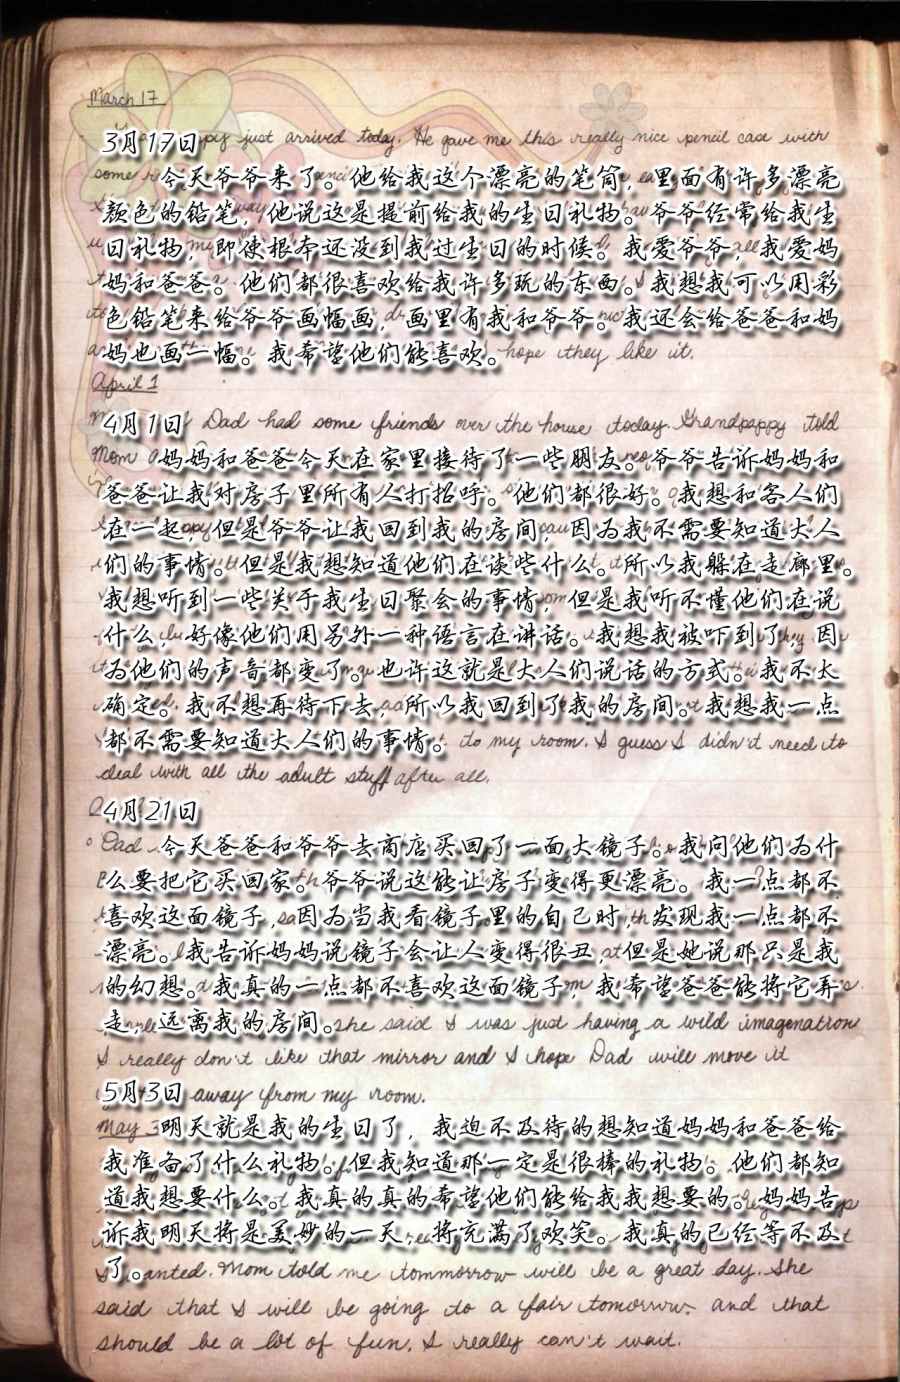 March 17
3月17日
just arrived today. He gave me this really nice pencil case with
some
今天爷爷来了。他给我这个漂亮的笔筒，里面有许多漂亮
颜色的铅笔，他说这是提前给我的生日礼物。爷爷经常给我生
日礼物，即使根本还没到我过生日的时候。我爱爷爷，我爱妈
妈和爸爸。他们都很喜欢给我许多玩的东西。我想我可以用彩
色铅笔来给爷爷画幅画，画里有我和爷爷。我还会给爸爸和妈
妈也画一幅。我希望他们能喜欢。 hope they like it.
April 1
4月1日 Dad had some friends over the house today. Grandpappy told
Mom
妈妈和爸爸今天在家里接待了一些朋友。爷爷告诉妈妈和
爸爸让我对房子里所有人打招呼。他们都很好。我想和客人们
在一起，但是爷爷让我回到我的房间，因为我不需要知道大人
们的事情。但是我想知道他们在谈些什么。所以我躲在走廊里。
我想听到一些关于我生日聚会的事情，但是我听不懂他们在说
什么，好像他们用另外一种语言在讲话。我想我被吓到了，因
为他们的声音都变了。也许这就是大人们说话的方式。我不太
确定。我不想再待下去，所以我回到了我的房间。我想我一点
都不需要知道大人们的事情。 to my room. I guess I didn't need to
deal with all the adult stuff after all.
4月21日
Dad
今天爸爸和爷爷去商店买回了一面大镜子。我问他们为什
么要把它买回家。爷爷说这能让房子变得更漂亮。我一点都不
喜欢这面镜子，因为当我看镜子里的自己时，发现我一点都不
漂亮。我告诉妈妈说镜子会让人变得很丑，但是她说那只是我
的幻想。我真的一点都不喜欢这面镜子，我希望爸爸能将它弄
走，远离我的房间。 she said I was just having a wild imagenation
I really don't like that mirror and I hope Dad will move it
5月3日 away from my room.
May 3
明天就是我的生日了，我迫不及待的想知道妈妈和爸爸给
我准备了什么礼物。但我知道那一定是很棒的礼物。他们都知
道我想要什么。我真的真的希望他们能给我我想要的。妈妈告
诉我明天将是美妙的一天，将充满了欢笑。我真的已经等不及
了。 wanted. Mom told me tommorrow will be a great day. She
said that I will be going to a fair tomorrow. and that
should be a lot of fun. I really can't wait.